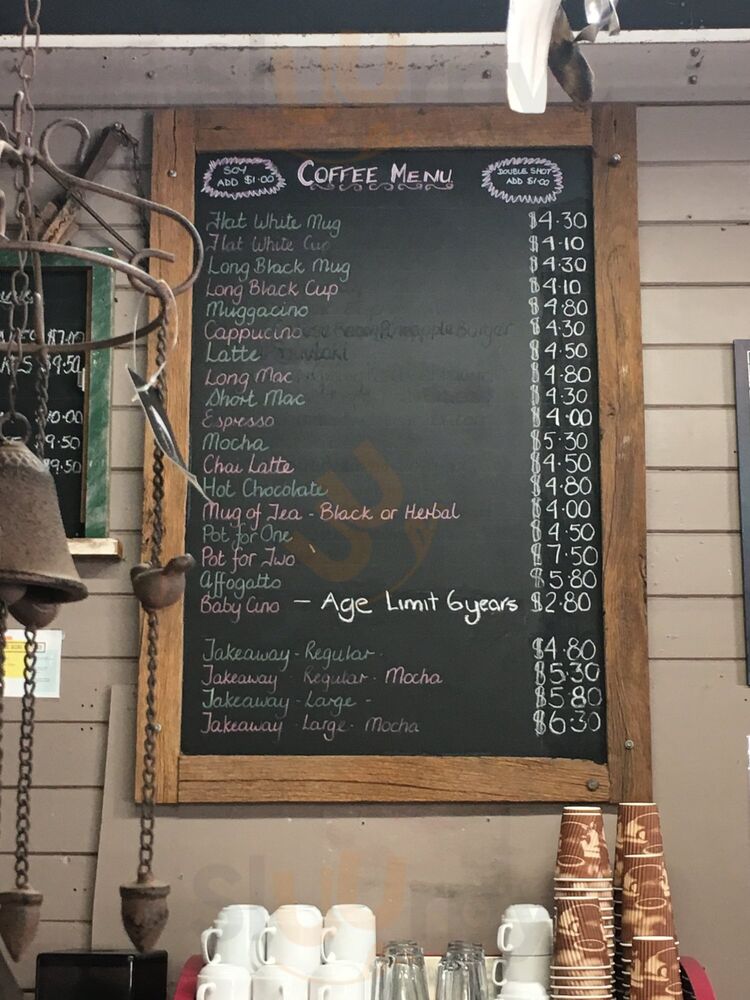 SOY
ADD $1.00
COFFEE MENU
DOUBLE SHOT
ADD $1.00
Flat White Mug $4.30
Flat White Cup $4.10
Long Black Mug $4.30
Long Black Cup $4.10
Muggacino $4.80
Cappucino $4.30
Latte $4.50
Long Mac $4.80
Short Mac $4.30
Espresso $4.00
Mocha $5.30
Chai Latte $4.50
Hot Chocolate $4.80
Mug of Tea - Black or Herbal $4.00
Pot for One $4.50
Pot for Two $7.50
Affogatto $5.80
Baby Cino - Age Limit 6years $2.80
Takeaway - Regular - $4.80
Takeaway - Regular - Mocha $5.30
Takeaway - Large - $5.80
Takeaway - Large - Mocha $6.30
$9.50
9.50
$9.50